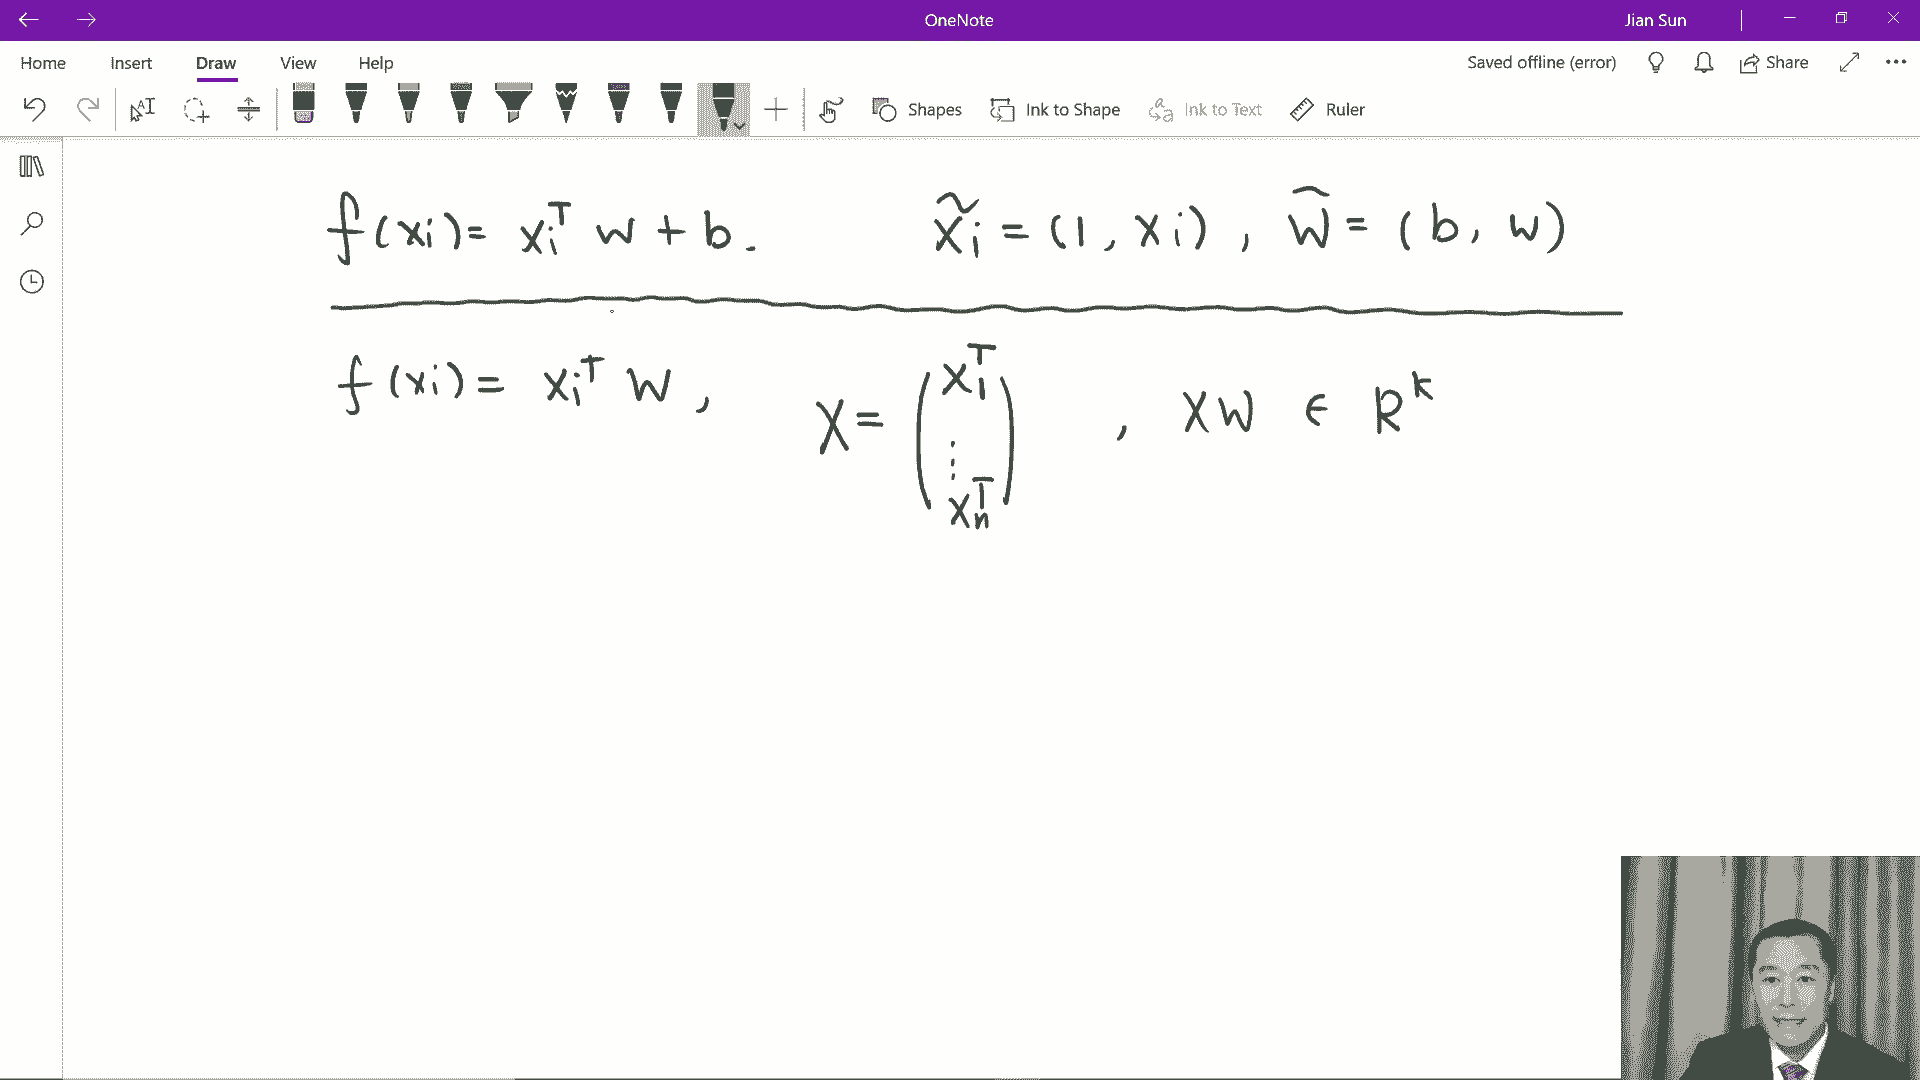 OneNote
Jian Sun
Home Insert Draw View Help
Saved offline (error)
Share
Shapes
Ink to Shape
Ink to Text
Ruler
f(xi)= xiᵀ w + b. x̃i = (1, xi), w̃ = (b, w)
f(xi)= xiᵀ w, X = (x₁ᵀ ⋮ xₙᵀ), Xw ∈ Rᵏ